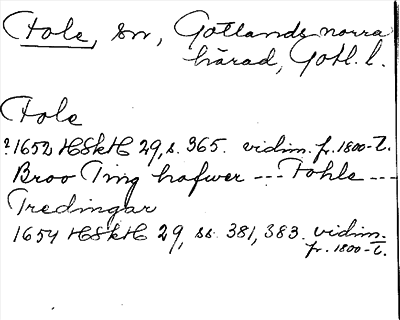 Fole, sn, Gotlands norra
härad, Gotl. l.
Fole
?1652 HSkH 29, s. 365. vidim. fr. 1800-t.
Broo Ting hafwer --- Fohle ---
Tredingar
1654 HSkH 29, ss. 381, 383. vidim.
fr. 1800-t.